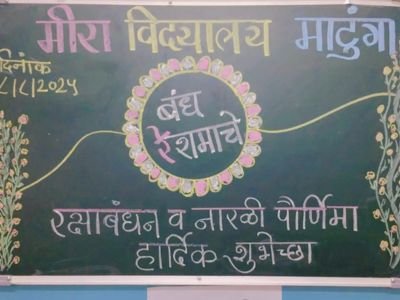 मीरा विद्यालय माटुंगा
दिनांक
८/८/२०२५
बंध
रेशमाचे
रक्षाबंधन व नारळी पौर्णिमा
हार्दिक शुभेच्छा